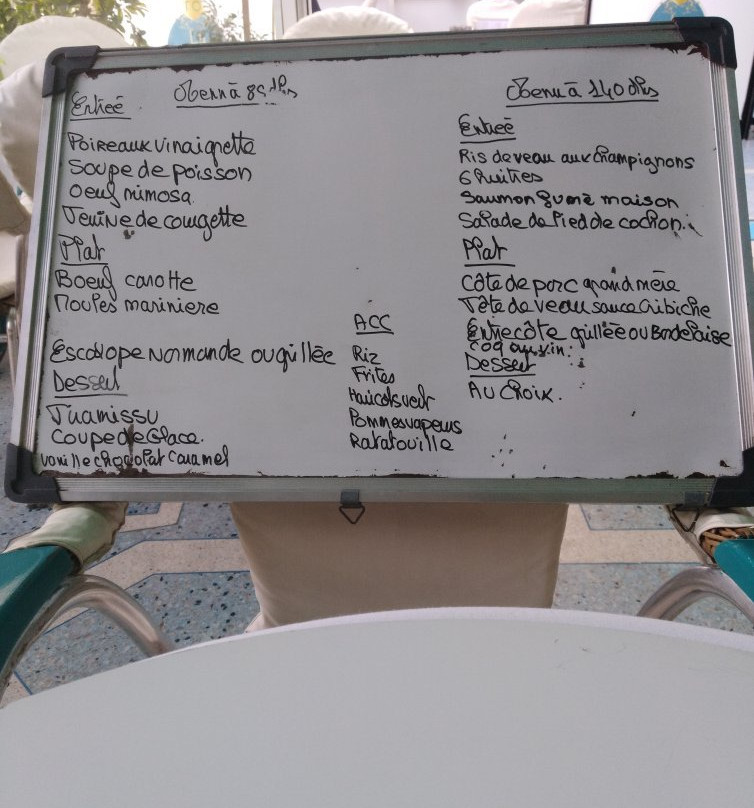 Menu à 85 dhs
Entreé
Poireaux vinaigrette
Soupe de poisson
Oeuf mimosa
Terrine de courgette
Plat
Boeuf carotte
Moules mariniere
Escalope Normande ou grillée
Dessert
Tiramissu
Coupe de Glace.
vanille chocolat caramel
ACC
Riz
Frites
Haricots vert
Pommes vapeurs
Ratatouille
Menu à 140 dhs
Entreé
Ris de veau aux champignons
6 Huitres
Saumon fumé maison
Salade de Pied de cochon.
Plat
Côte de porc grand mère
Tête de veau sauce Gribiche
Entrecôte grillée ou Bordelaise
Coq au vin.
Dessert
Au Choix.